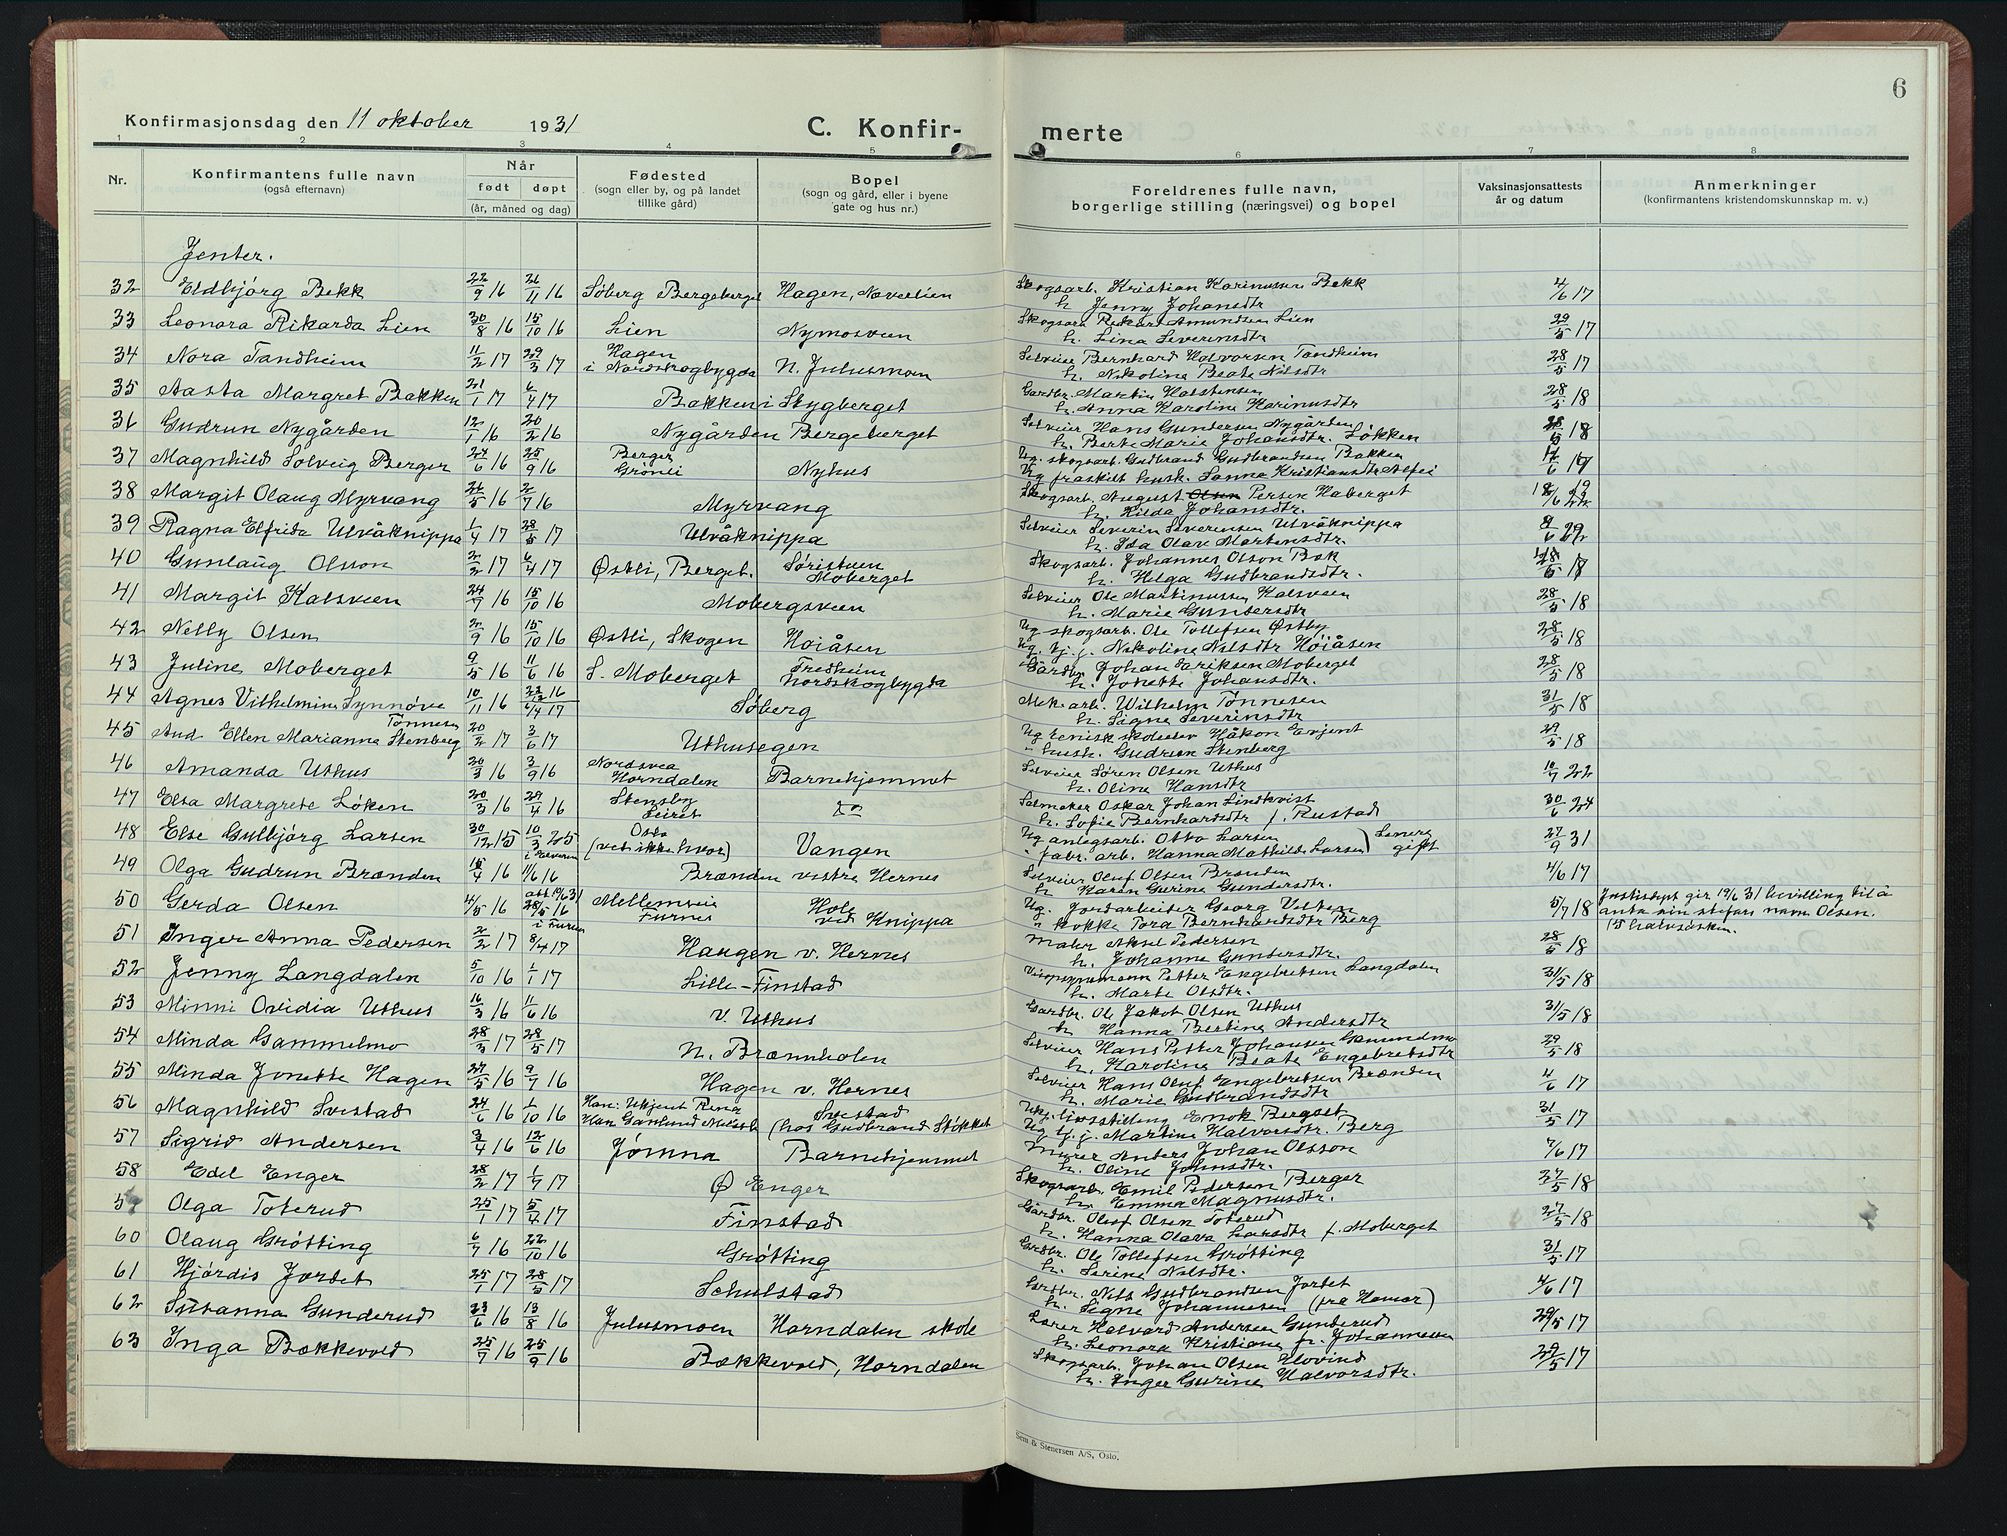 6
Konfirmasjonsdag den 11 oktober 1931
C. Konfir- merte
1 2 3 4 5 6 7 8
Nr.
Konfirmantens fulle navn
(også efternavn)
Når
født døpt
(år, måned og dag)
Fødested
(sogn eller by, og på landet
tillike gård)
Bopel
(sogn og gård, eller i byene
gate og hus nr.)
Foreldrenes fulle navn,
borgerlige stilling (næringsvei) og bopel
Vaksinasjonsattests
år og datum
Anmerkninger
(konfirmantens kristendomskunnskap m. v.)
Jenter.
32 Eldbjørg Bekk 22/9 16 26/11 16 Søberg Bergeberget Hagen, Skogsarb. Kristian Karinussen Bekk 4/6 17
h. Jenny Johansdtr
33 Leonora Rikarda Lien 30/8 16 15/10 16 Lien Nymosveen Skogsarb Rikard Amundsen Lien 29/5 17
h. Lina Severinsdtr
34 Nora Tandheim 11/2 17 29/3 17 Hagen i Nordskogbygda N. Julusmoen Selveier Bernhard Halvorsen Tandheim 28/5 17
h. Nikoline Beate Nilsdtr
35 Aasta Margret Bakken 21/1 17 6/4 17 Bakken i Stygberget Gardbr. Martin Halstensen 28/5 18
h. Anna Karoline Karinusdtr
36 Gudrun Nygården 12/1 16 20/2 16 Nygården Bergeberget Selveier Hans Gundersen Nygården 28/5 18
h. Berte Marie Johansdtr. Løkken
37 Magnhild Solveig Berger 27/6 16 25/9 16 Berger Grønli Nyhus Ug. skogsarb. Gudbrand Gudbrandsen Bakken
Ug fraskilt husk. Sanna Kristiansdtr
38 Margit Olaug Myrvang 26/5 16 2/7 16 Myrvang Skogsarb. August Olsen Persen Haberget
h. Hilda Johansdtr.
39 Ragna Elfrida Ulvåknippa 1/4 17 28/5 17 Ulvåknippa Selveier Severin Severinsen Ulvåknippa
h. Ida Olave Martinsdtr.
40 Gunlaug Olsson 2/2 17 6/4 17 Østli, Berget. Søristuen Moberget Skogsarb. Johannes Olson Bak
h. Helga Gudbrandsdtr.
41 Margit Kalsveen 24/7 16 15/10 16 Mobergsveen Selveier Ole Martinussen Kalsveen 28/5 18
h. Marie Gundersdtr
42 Nelly Olsen 2/9 16 15/10 16 Østli, Skogen Høiåsen Ug skogsarb. Ole Tollefsen Østby 28/5 18
Ug. tj.j. Nikoline Nilsdtr Høiåsen
43 Juline Moberget 9/5 16 11/6 16 S. Moberget Fredheim Nordskogbygda Gardbr. Johan Eriksen Moberget 28/5 18
h. Jonette Johansdtr.
44 Agnes Vilhelmine Synnøve Tønnesen 10/11 16 6/4 17 Søberg Mek. arb. Wilhelm Tønnesen 31/5 18
h. Signe Severinsdtr
45 Aud Ellen Marianna Stenberg 20/2 17 3/6 17 Uthusegen Ug teknisk skoleelev Håkon Evjent 29/5 18
" husk. Gudrun Stenberg
46 Amanda Uthus 20/3 16 3/9 16 Nordsvea Horndalen Barnehjemmet Selveier Søren Olsen Uthus 10/7 22
h. Oline Hansdtr
47 Elsa Margrete Løken 20/3 16 29/4 16 Stensby Leiret do Salmaker Oskar Johan Lindkvist 30/6 24
h. Sofie Bernhardsdtr f. Rustad
48 Else Gulbjørg Larsen 30/12 15 10/3 205 i Elverum Oslo (vet ikke hvor) Vangen Ug anlegsarb. Otto Larsen 27/9 31
" fabr. arb. Hanna Mathilde Larsen ) Senere gift
49 Olga Gudrun Brænden 15/4 16 11/6 16 Brænden vestre Hernes Selveier Oluf Olsen Brænden 4/6 17
h Karen Gurine Gundersdtr.
50 Gerda Olsen 4/5 16 28/5 16 i Furnes Mellemveie Furnes Hole ved Knippa Ug. Jordarbeider Georg Velten 5/7 18 Justisdept gir 19/6 31 bevilling til å
" kokke Tora Bernhardsdtr Berg anta sin stefars navn Olsen.
15 halvsøsken.
51 Inger Anna Pedersen 2/2 17 8/4 17 Haugen v. Hernes Maler Aksel Pedersen 28/5 18
h. Johanne Gundersdtr.
52 Jenny Langdalen 5/10 16 1/1 17 Lille-Finstad Petter Engebretsen Langdalen 31/5 18
h. Marte Olsdtr.
53 Minni Ovidia Uthus 16/3 16 11/6 16 V. Uthus Gardbr. Ole Jakob Olsen Uthus 31/5 18
h Hanna Bertine Andersdtr
54 Minda Gammelmo 28/3 17 28/5 17 N. Brænnholen Selveier Hans Petter Johansen 29/5 18
h. Karoline Beate Engebretsdtr
55 Minda Jonette Hagen 27/5 16 9/7 16 Hagen v. Hernes Selveier Hans Oluf Engebretsen Brænden 4/6 17
h. Marie Gudbrandsdtr
56 Magnhild Svestad 24/6 16 1/10 16 Svestad (hos Gudbrand Støkket Ukj. livsstilling Enok Bergset 31/5 17
Ug tj.j. Martine Halvorsdtr. Berg
57 Sigrid Andersen 3/4 16 12/6 16 Jømna Barnehjemmet Murer Anders Johan Olsson 7/6 17
h. Oline Johnsdtr.
58 Edel Enger 28/2 17 1/7 17 Ø Enger Skogsarb. Emil Pedersen Berger 27/5 18
h. Emma Magnusdtr.
59 Olga Toterud 25/1 17 5/4 17 Finstad Gardbr. Oluf Olsen Toterud 27/5 18
h. Hanna Olava Larsdtr f. Moberget
60 Olaug Grøtting 6/7 16 22/10 16 Grøtting Gardbr. Ole Tollefsen Grøtting 31/5 17
h. Serine Nilsdtr.
61 Hjørdis Jordet 25/1 17 28/5 17 Schulstad Gardbr. Nils Gudbrandsen Jordet 4/6 17
h. Signe Johannesen (fra Hamar)
62 Susanna Gunderud 23/6 16 13/8 16 Julusmoen Horndalen skole Lærer Halvard Andersen Gunderud 29/5 17
h. Leonora Kristiane f. Johannesen
63 Inga Bækkevold 25/7 16 25/9 16 Bækkevold, Horndalen Skogsarb. Johan Olsen Hovind 29/5 17
h. Inger Gurine Halvorsdtr.
Sem & Stenersen A/S, Oslo.